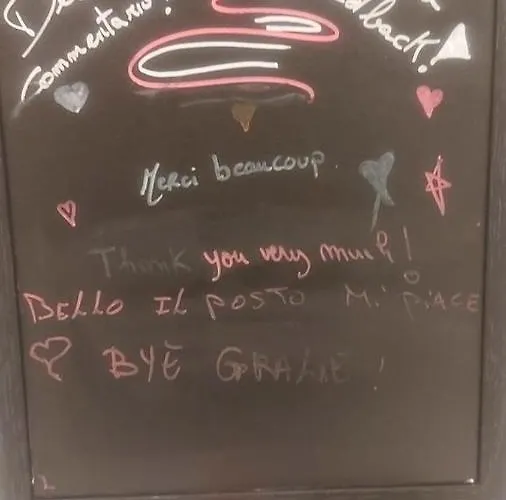 commentario!
feedback!
Merci beaucoup.
Thank you very much!
BELLO IL POSTO Mi PIACE
BYE GRAZIE!